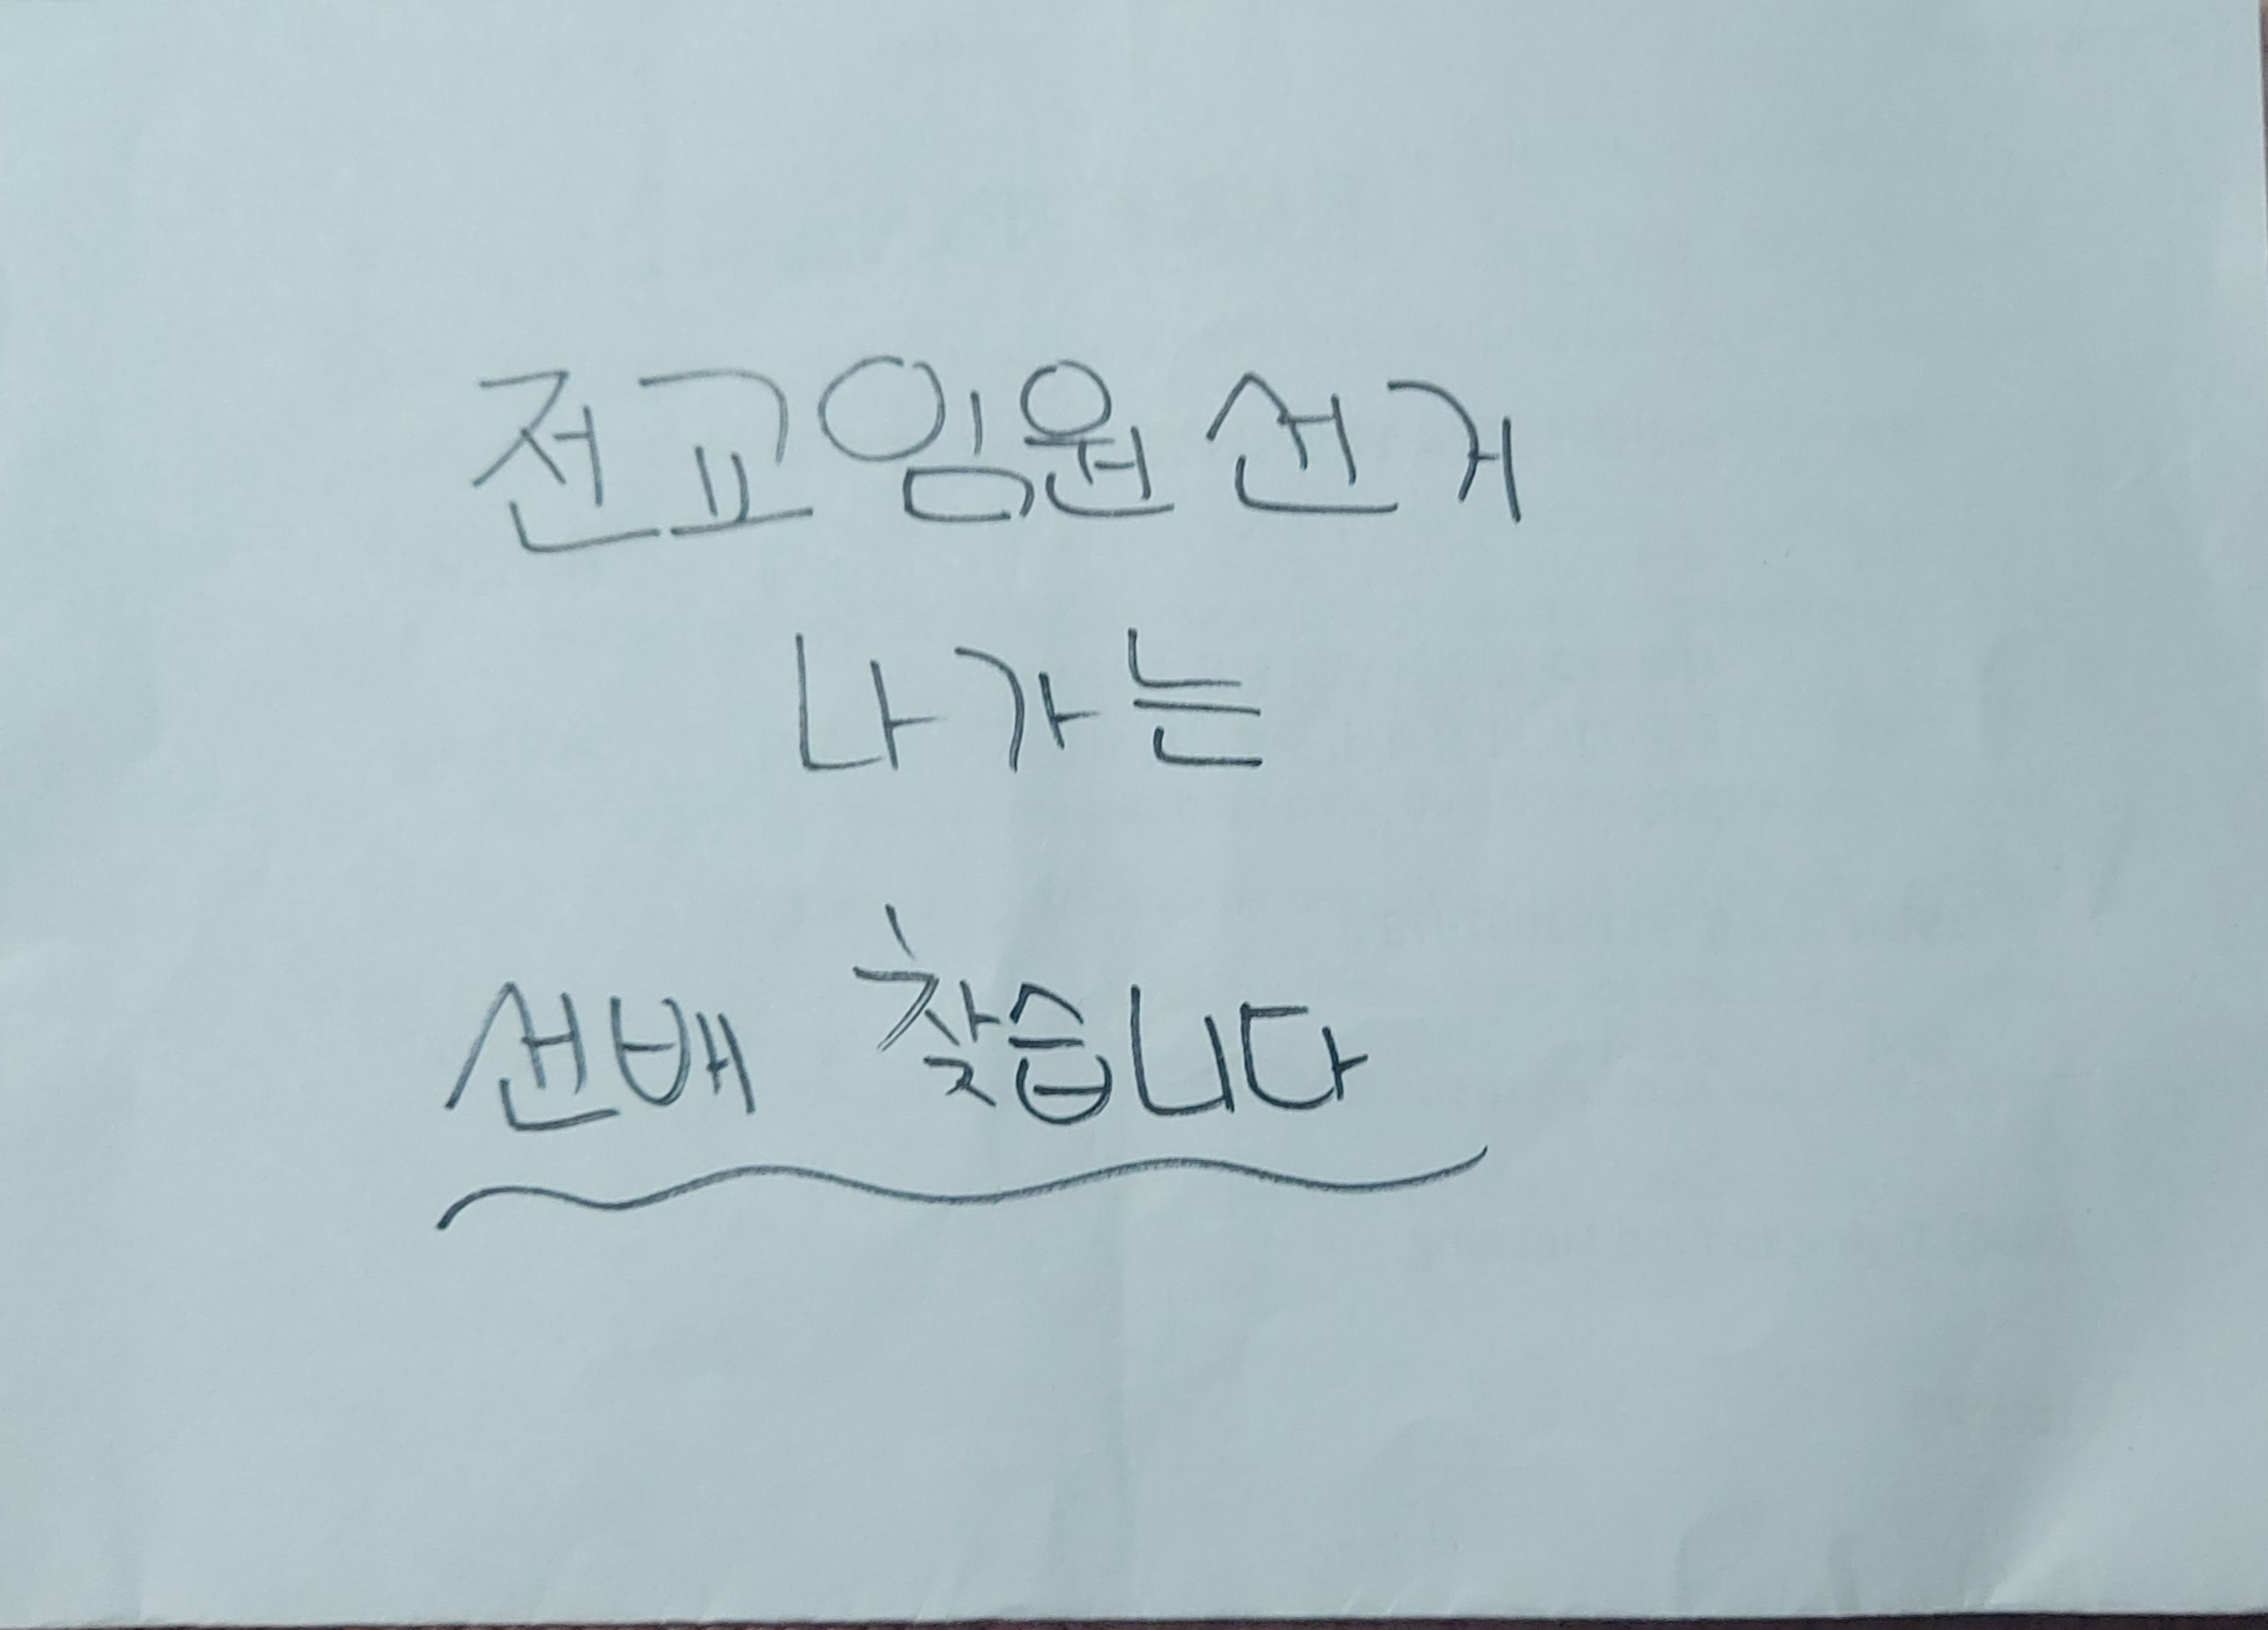 전교임원 선거
나가는
선배 찾습니다